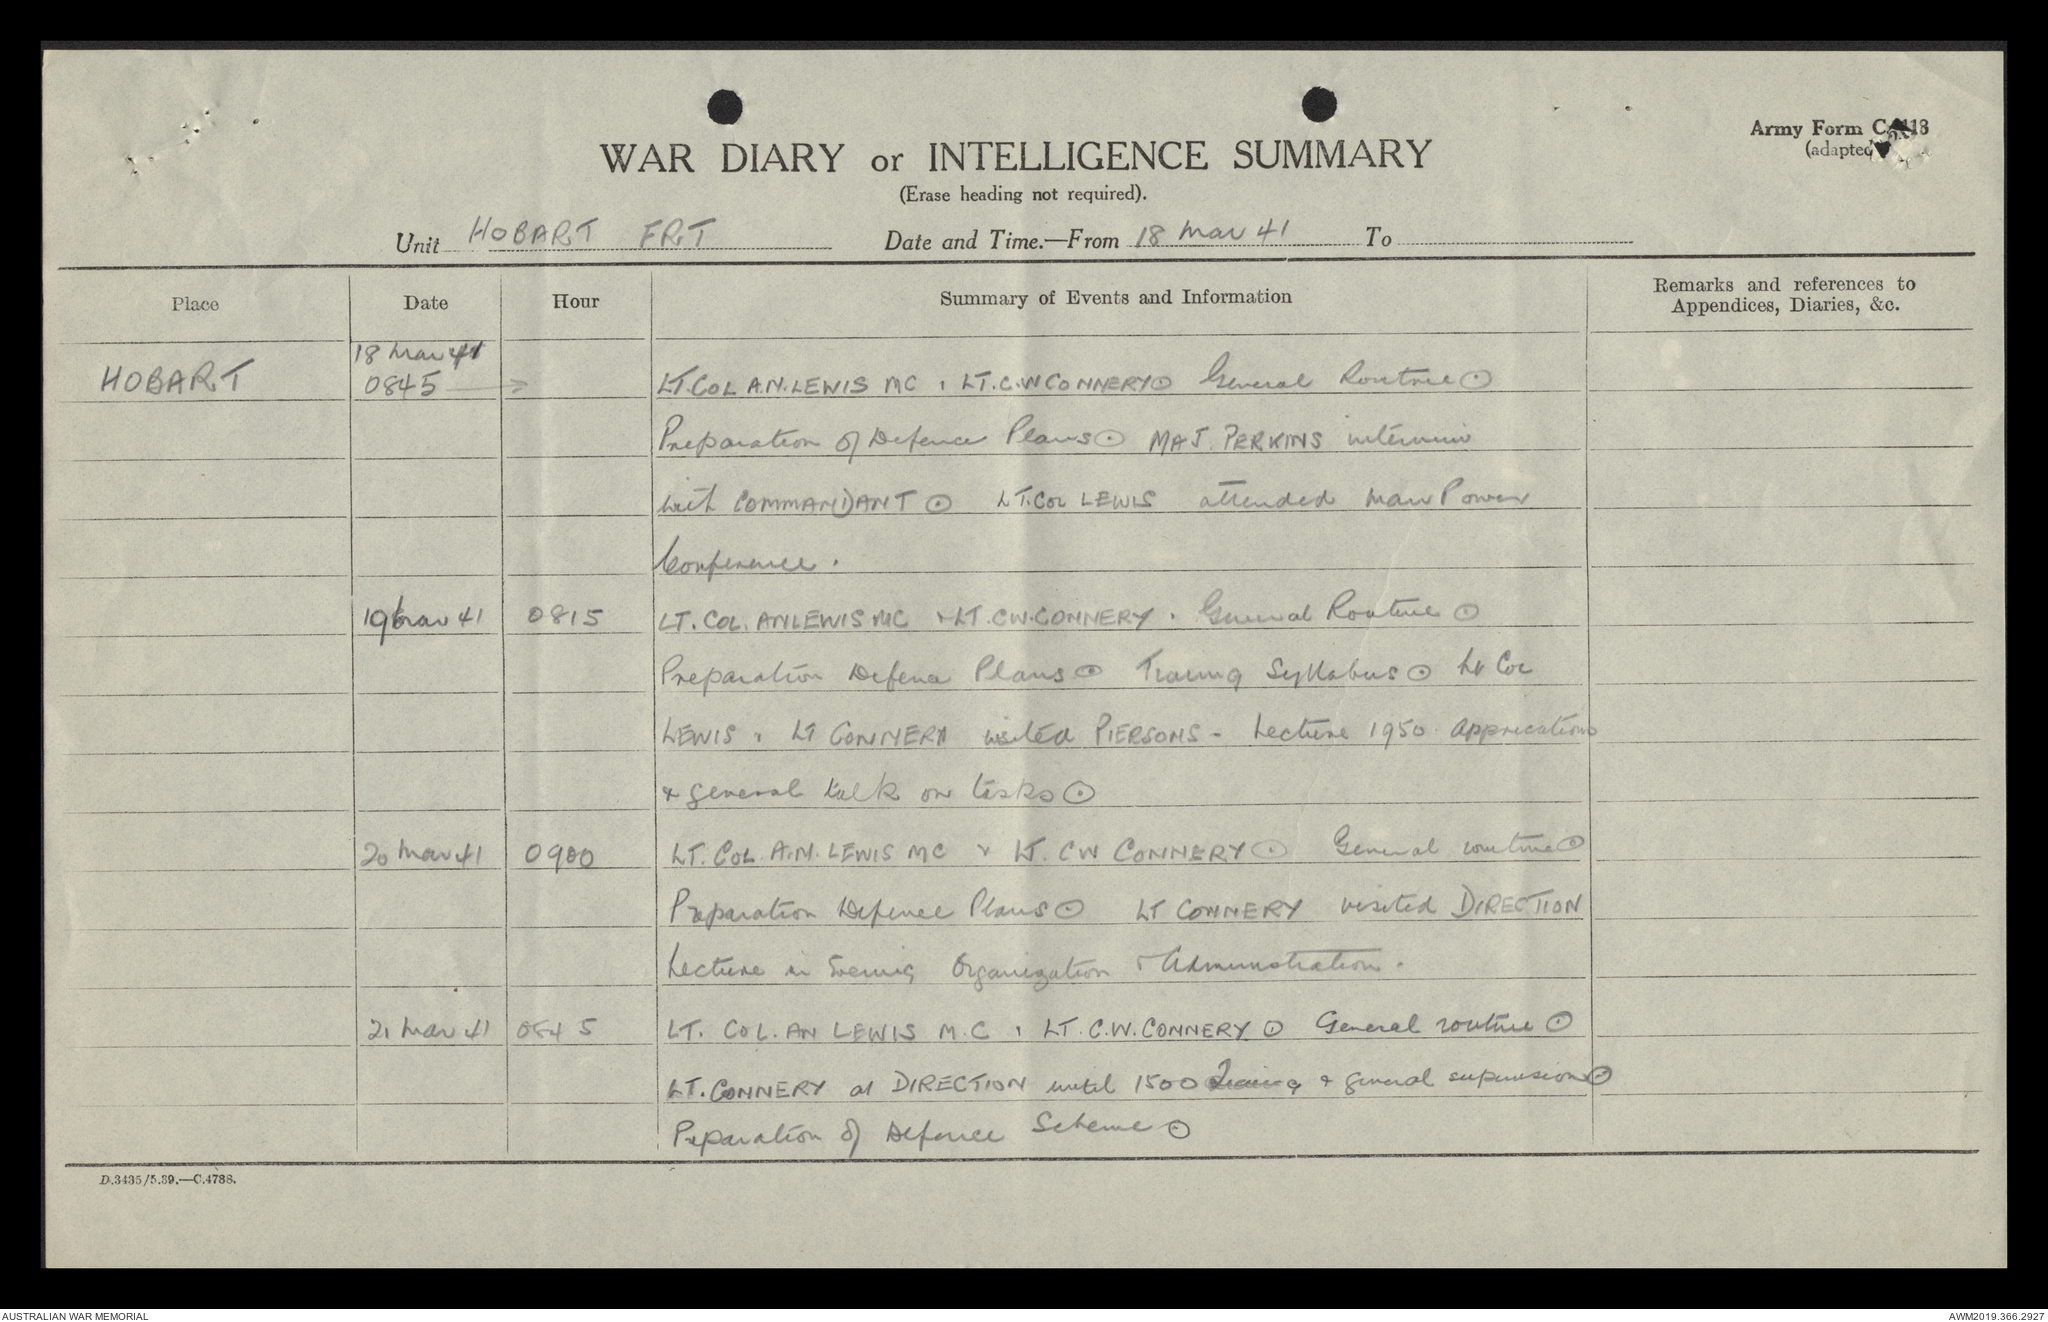 Army Form C.2118
(adapted)
WAR DIARY or INTELLIGENCE SUMMARY
(Erase heading not required).
Unit HOBART FRT Date and Time.—From 18 Mar 41 To
Place Date Hour Summary of Events and Information Remarks and references to Appendices, Diaries, &c.
18 Mar 41
HOBART 0845 → LT.COL A.N.LEWIS MC & LT.C.W CONNERY⊙ General Routine⊙
Preparation of Defence Plans⊙ MAJ. PERKINS interview
with COMMANDANT⊙ LT.COL LEWIS attended Man Power
Conference.
19 Mar 41 0815 LT. COL. A N LEWIS MC & LT. C W. CONNERY. General Routine⊙
Preparation Defence Plans⊙ Training Syllabus⊙ Lt Col
LEWIS & LT CONNERY visited PIERSONS - Lecture 1950 Appreciations
& general talk on tasks⊙
20 Mar 41 0900 LT. COL. A.N. LEWIS MC & LT. C W CONNERY⊙ General routine⊙
Preparation Defence Plans⊙ LT CONNERY visited DIRECTION
Lecture in Evening Organization & Administration.
21 Mar 41 0845 LT. COL. A N LEWIS M.C & LT. C.W. CONNERY⊙ General routine⊙
LT. CONNERY at DIRECTION until 1500 Training & general supervision⊙
Preparation of Defence Scheme⊙
D.3435/5.39.—C.4788.
AUSTRALIAN WAR MEMORIAL AWM2019.366.2927